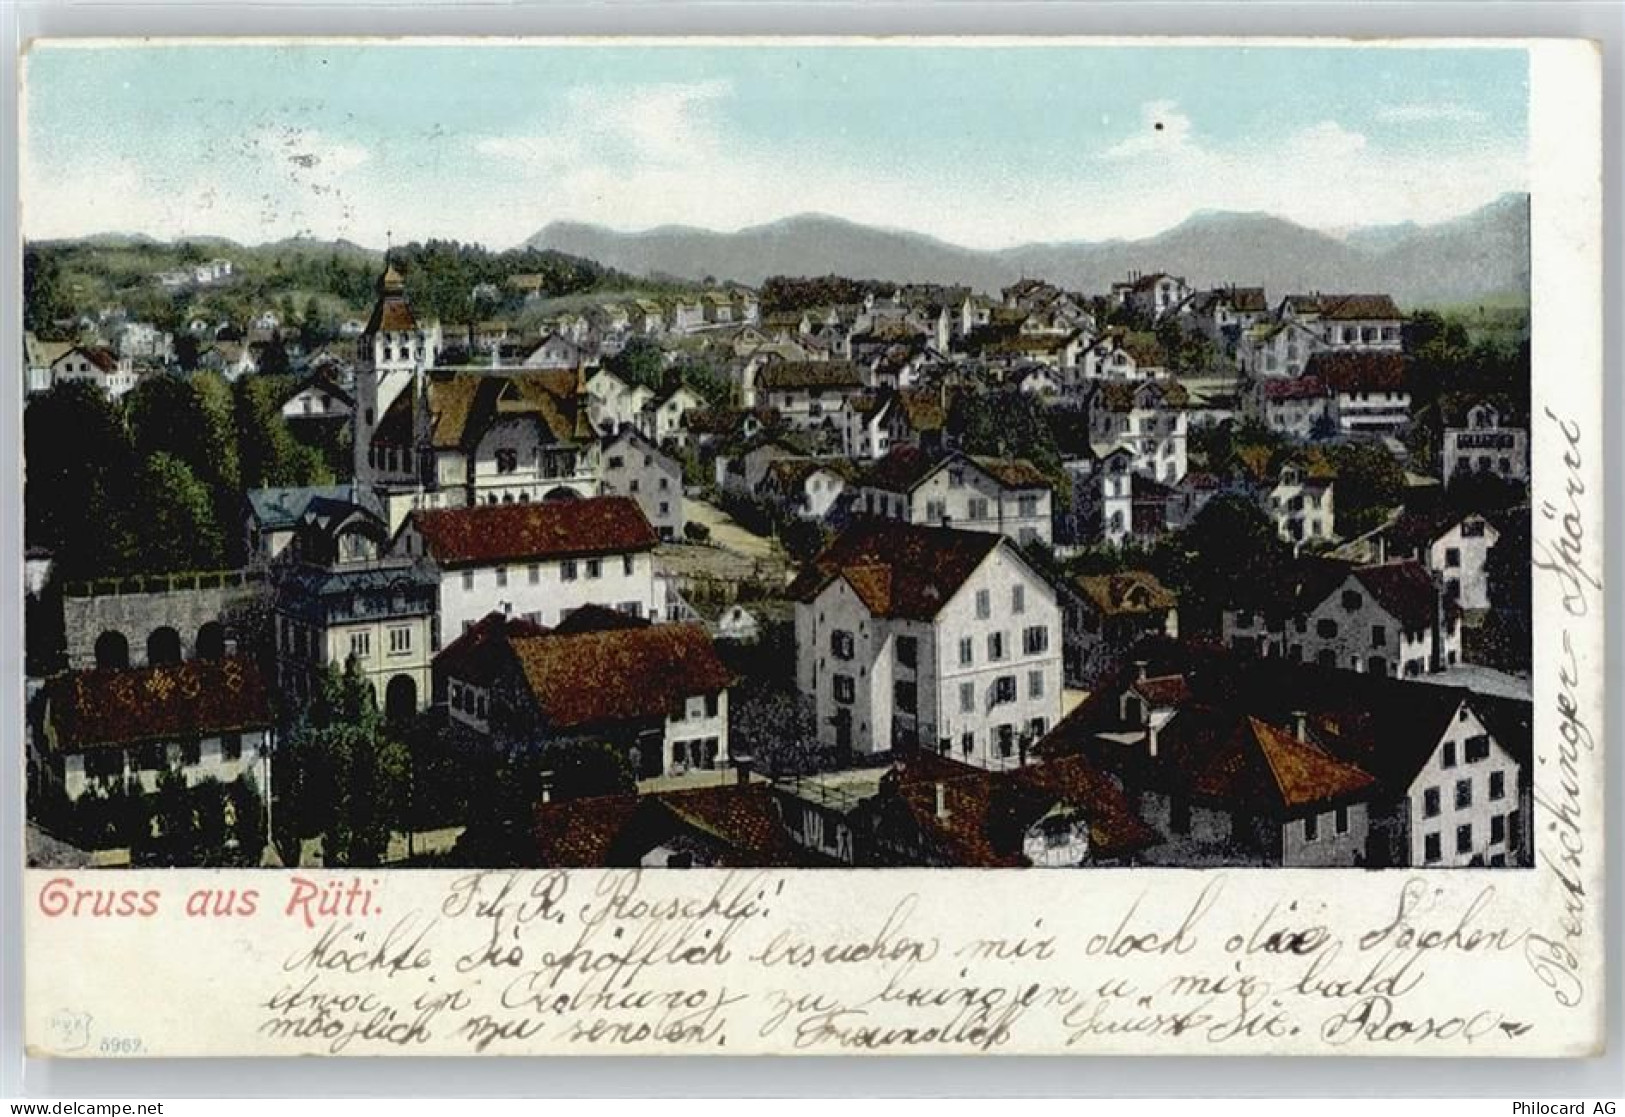 Gruss aus Rüti.
Frl. R. Roeschli!
Möchte Sie höfflich ersuchen mir doch die Sachen
etwa in Ordnung zu bringen u mir bald
möglich zu senden. Freundlich Grüsst Sie. Rosa
Bertschinger-Spörri
5962.
delcampe.net
thedoc78
Philocard AG